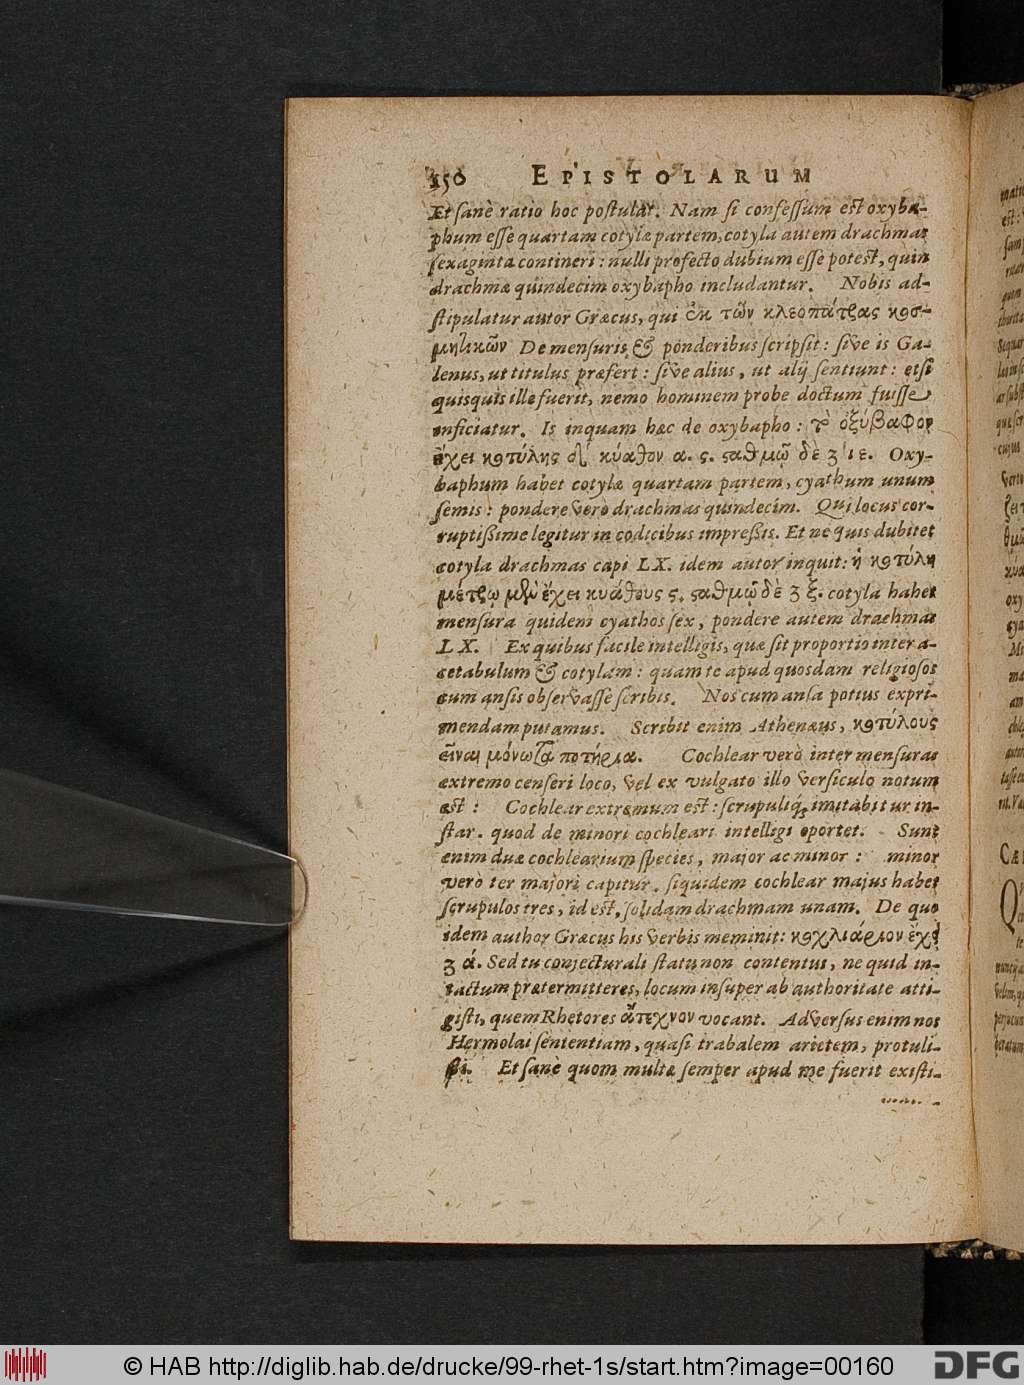 150 EPISTOLARUM
Et sanè ratio hoc postulat. Nam si confessum est oxyba-
phum esse quartam cotylæ partem, cotyla autem drachmas
sexaginta contineri: nulli profecto dubium esse potest, quin
drachmæ quindecim oxybapho includantur. Nobis ad-
stipulatur autor Græcus, qui ἐκ τῶν κλεοπάτρας κοσ-
μητικῶν De mensuris & ponderibus scripsit: sive is Ga-
lenus, ut titulus præfert: sive alius, ut alij sentiunt: etsi
quisquis ille fuerit, nemo hominem probe doctum fuisse
inficiatur. Is inquam hæc de oxybapho: τὸ ὀξύβαφον
ἔχει κοτύλης κύαθον α. ς. ςαθμῷ δὲ ʒ ιε. Oxy-
baphum habet cotylæ quartam partem, cyathum unum
semis: pondere verò drachmas quindecim. Qui locus cor-
ruptissime legitur in codicibus impressis. Et ne quis dubitet
cotyla drachmas capi LX. idem autor inquit: ἡ κοτύλη
μέτρῳ μὲν ἔχει κυάθους ς. ςαθμῷ δὲ ʒ ξ. cotyla habet
mensura quidem cyathos sex, pondere autem drachmas
LX. Ex quibus facile intelligis, quæ sit proportio inter a-
cetabulum & cotylam: quam te apud quosdam religiosos
cum ansis observasse scribis. Nos cum ansa potius expri-
mendam putamus. Scribit enim Athenæus, κοτύλους
εἶναι μόνωτα ποτήρια. Cochlear verò inter mensuras
extremo censeri loco, vel ex vulgato illo versiculo notum
est: Cochlear extremum est: scrupuliq; imitabitur in-
star. quod de minori cochleari intelligi oportet. Sunt
enim duæ cochlearium species, major ac minor: minor
verò ter majori capitur. siquidem cochlear majus habet
scrupulos tres, id est, solidam drachmam unam. De quo
idem author Græcus his verbis meminit: κοχλιάριον ἔχει
ʒ ά. Sed tu conjecturali statu non contentus, ne quid in-
tactum prætermitteres, locum insuper ab authoritate atti-
gisti, quem Rhetores ἄτεχνον vocant. Adversus enim nos
Hermolai sententiam, quasi trabalem arietem, protuli-
sti. Et sanè quom multæ semper apud me fuerit existi-
© HAB http://diglib.hab.de/drucke/99-rhet-1s/start.htm?image=00160
DFG